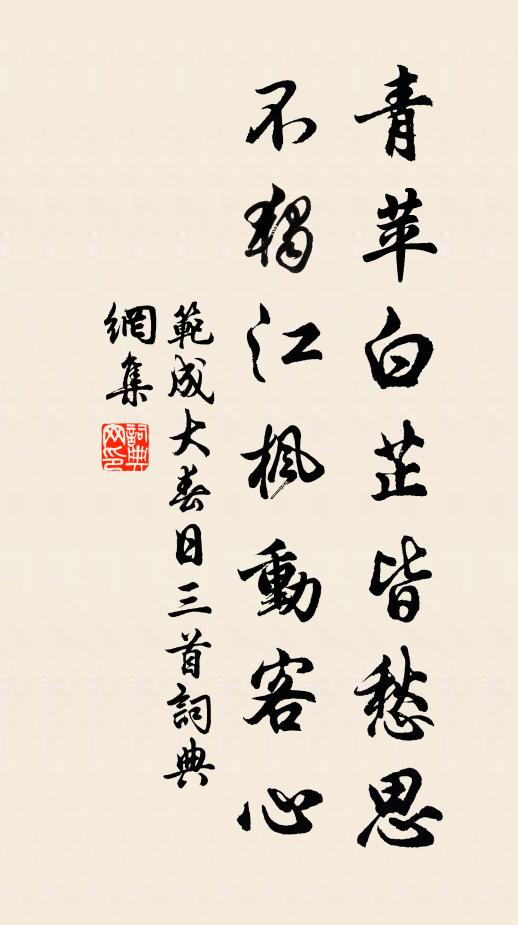 青苹白芷皆愁思
不獨江楓動客心
範成大春日三首詞典
網集
詞典
网印